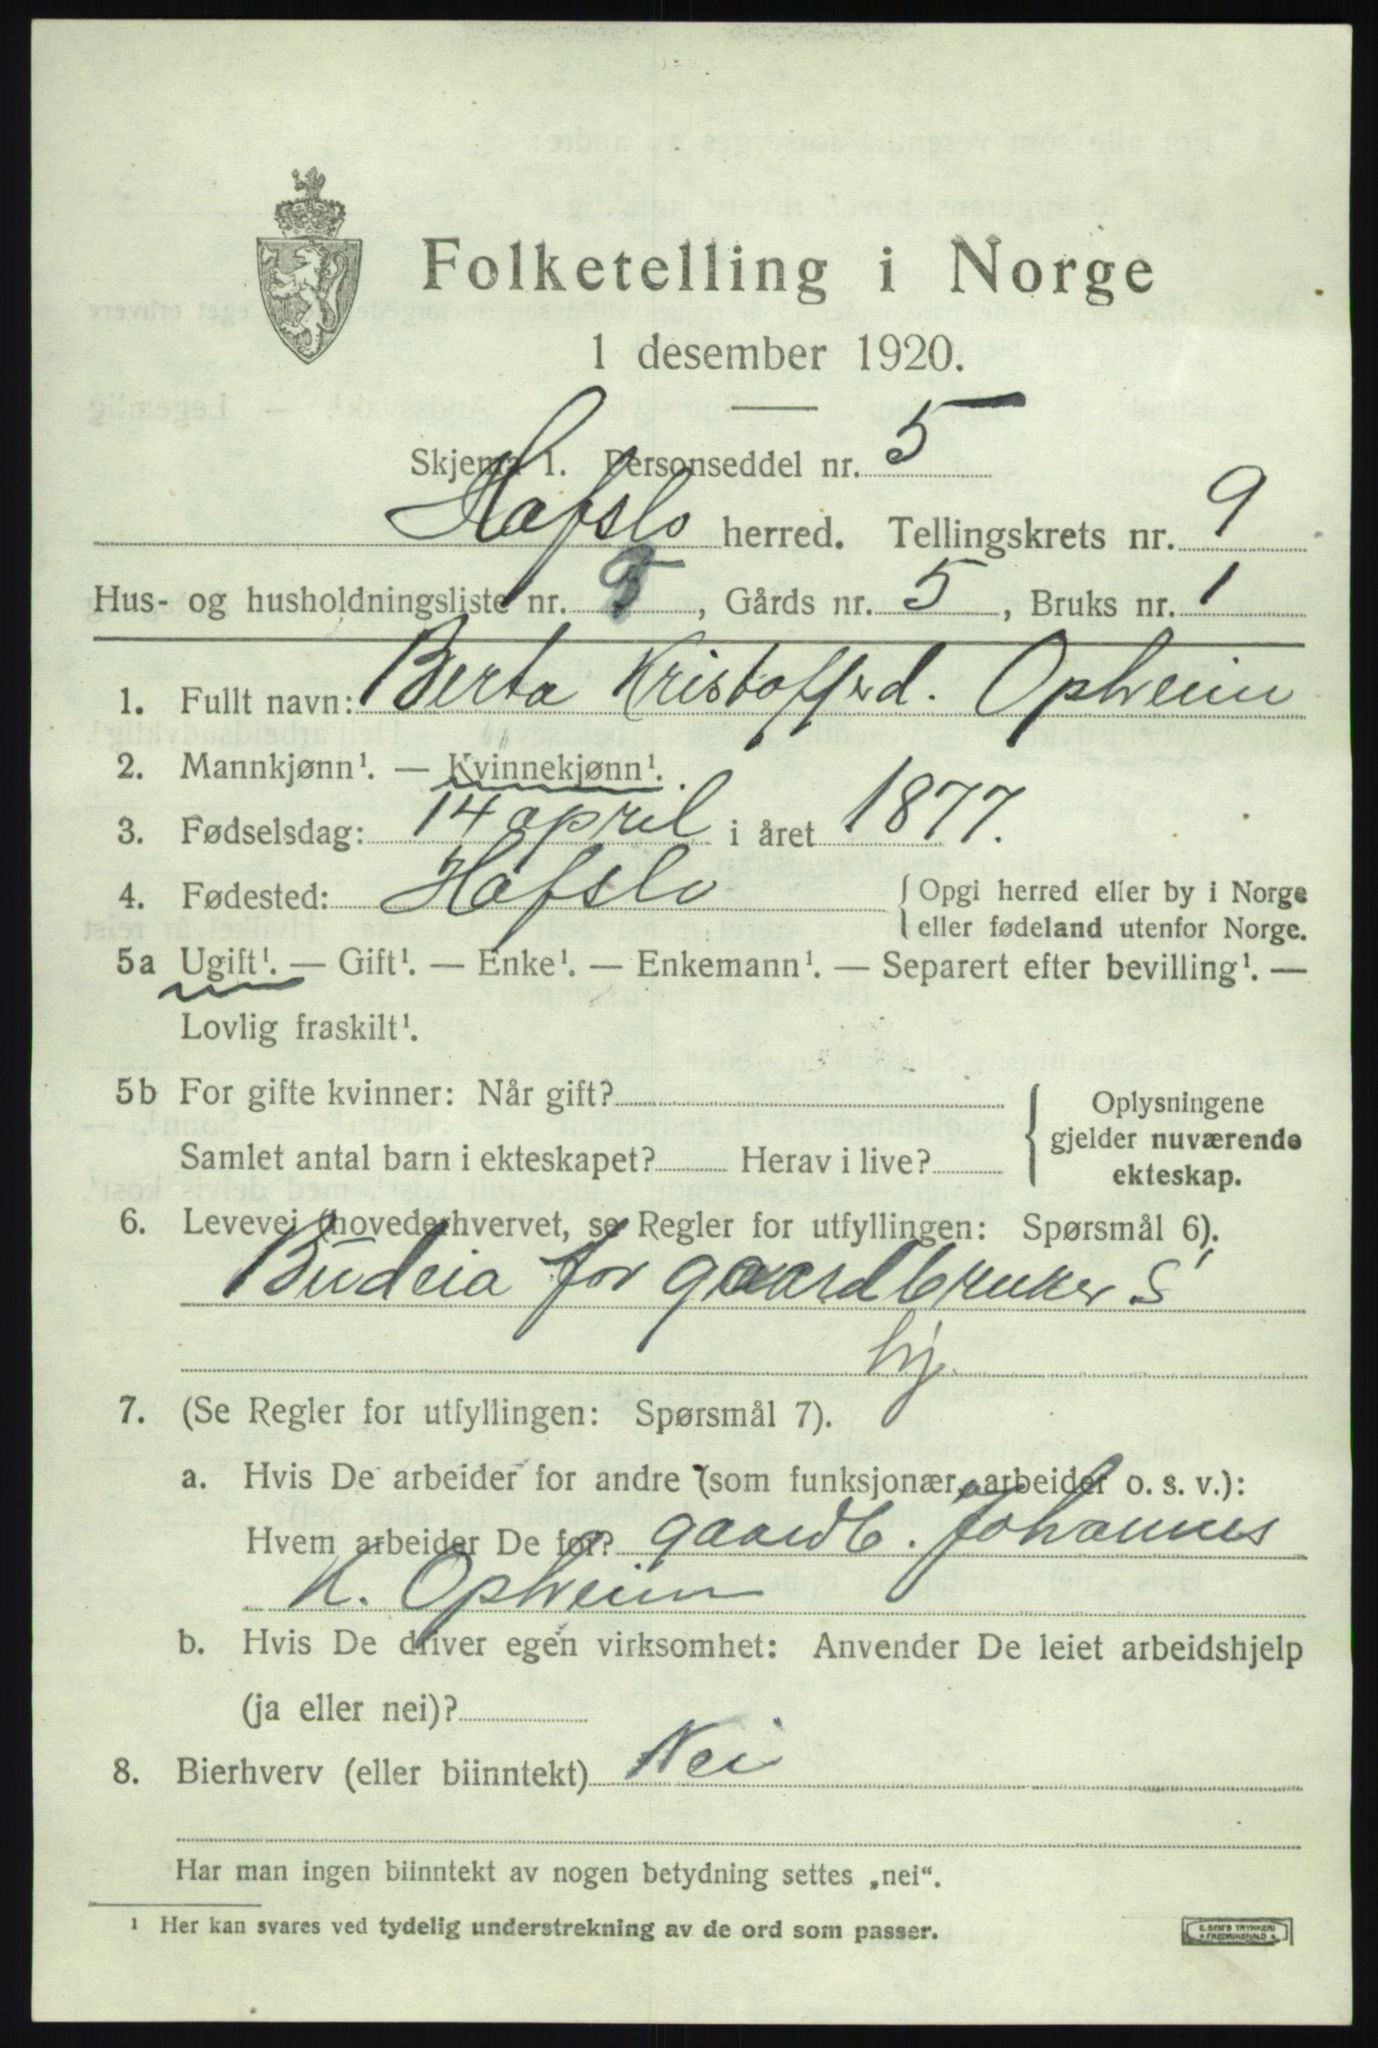 Folketelling i Norge
1 desember 1920.
Skjema 1. Personseddel nr. 5
Hafslo herred. Tellingskrets nr. 9
Hus- og husholdningsliste nr. , Gårds nr. 5, Bruks nr. 1
1. Fullt navn: Berta Kristofferd. Opheim
2. Mannkjønn¹. — Kvinnekjønn¹.
3. Fødselsdag: 14 april i året 1877.
4. Fødested: Hafslo { Opgi herred eller by i Norge
eller fødeland utenfor Norge.
5a Ugift¹. — Gift¹. — Enke¹. — Enkemann¹. — Separert efter bevilling¹. —
Lovlig fraskilt¹.
5b For gifte kvinner: Når gift? } Oplysningene
gjelder nuværende
ekteskap.
Samlet antal barn i ekteskapet? Herav i live?
6. Levevei (hovederhvervet, se Regler for utfyllingen: Spørsmål 6).
Budeia for gaardbruker S
hj.
7. (Se Regler for utfyllingen: Spørsmål 7).
a. Hvis De arbeider for andre (som funksjonær, arbeider o. s. v.):
Hvem arbeider De for? gaardb. Johannes
K. Opheim
b. Hvis De driver egen virksomhet: Anvender De leiet arbeidshjelp
(ja eller nei)?
8. Bierhverv (eller biinntekt) Nei
Har man ingen biinntekt av nogen betydning settes „nei“.
¹ Her kan svares ved tydelig understrekning av de ord som passer.
E. SEM'S TRYKKERI
FREDRIKSHALD